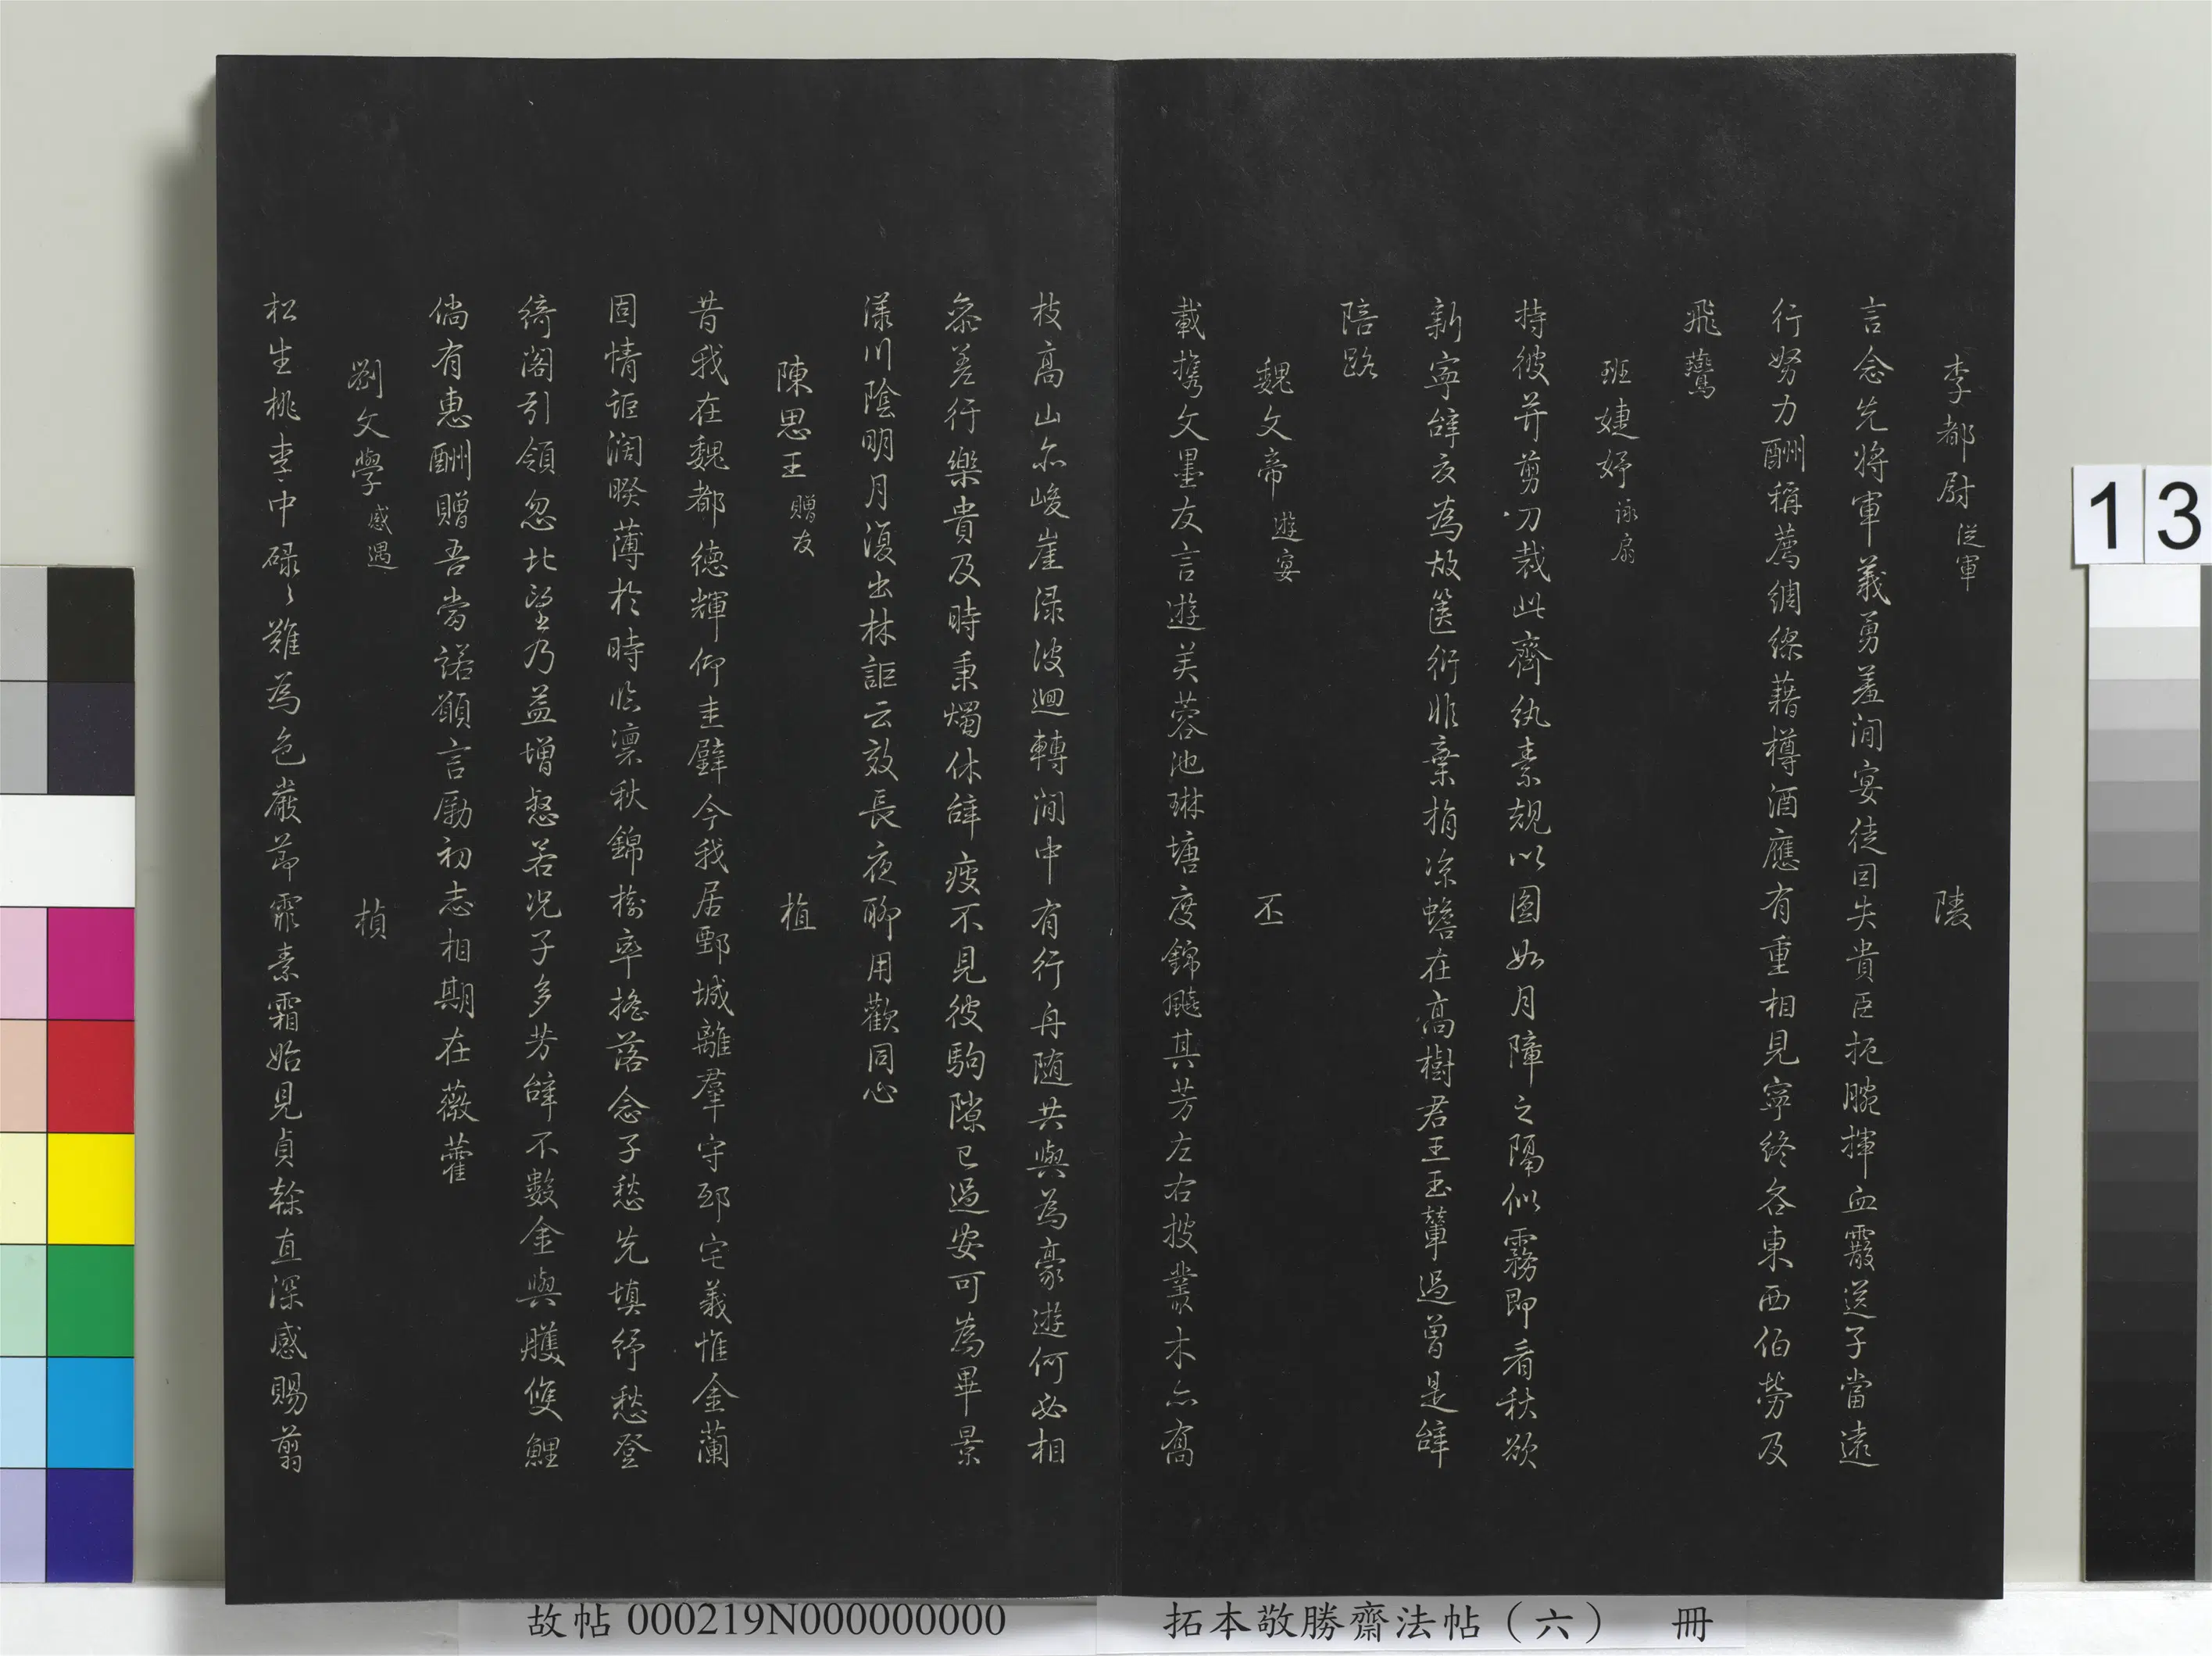 李都尉 從軍 陵
言念先將軍義勇羞閒宴徒因失貴臣扼腕揮血霰送子當遠
行努力酬稱薦綢繆藉樽酒應有重相見寧終各東西伯勞及
飛鷰
班婕妤 詠扇
持彼并剪刀裁此齊紈素規以圓如月障之隔似霧即看秋欲
新寧辭衣為故篋衍非棄捐涼蟾在高樹君王玉輦過曾是辭
陪路
魏文帝 遊宴 丕
載攜文墨友言遊芙蓉池琳塘度錦飈其芳左右披叢木亦喬
枝高山亦峻崖淥波迴轉間中有行舟隨共與為豪遊何必相
參差行樂貴及時秉燭休辭疲不見彼駒隙已過安可為畢景
漾川陰明月復出林詎云效長夜聊用歡同心
陳思王 贈友 植
昔我在魏都德輝仰圭璧今我居鄄城離羣守邸宅義惟金蘭
固情詎闊暌薄於時臨凜秋錦樹率搖落念子愁先填紓愁登
綺閣引領忽北望乃益增惄若況子多芳辭不數金與雘雙鯉
倘有惠酬贈吾當諾願言勵初志相期在薇藿
劉文學 感遇 楨
松生桃李中碌々難為色嚴節霏素霜始見貞榦直深感賜翦